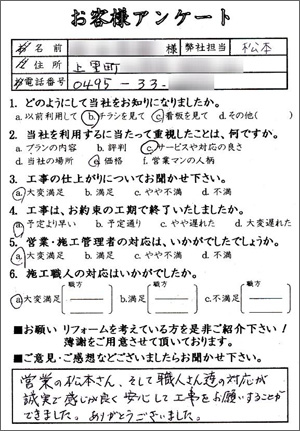 お客様アンケート
お名前 様 弊社担当 松本
ご住所 上里町
お電話番号 0495-33-
1. どのようにして当社をお知りになりましたか。
a.以前利用して b.チラシを見て c.看板を見て d.その他( )
2. 当社を利用するに当たって重視したことは、何ですか。
a.プランの内容 b.評判 c.サービスや対応の良さ
d.当社の場所 e.価格 f.営業マンの人柄
3. 工事の仕上がりについてお聞かせ下さい。
a.大変満足 b.満足 c.やや不満 d.不満
4. 工事は、お約束の工期で終了いたしましたか。
a.予定より早い b.予定通り c.やや遅れた d.大変遅れた
5. 営業・施工管理者の対応は、いかがでしたでしょうか。
a.大変満足 b.満足 c.やや不満 d.不満
6. 施工職人の対応はいかがでしたか。
職方 職方 職方
a.大変満足 b.満足 c.不満
■お願い リフォームを考えている方を是非ご紹介下さい!
薄謝をご用意させて頂いております。
■ご意見・ご感想などございましたらお聞かせ下さい。
営業の松本さん、そして職人さん達の対応が
誠実で感じが良く安心して工事をお願いすることが
できました。ありがとうございました。